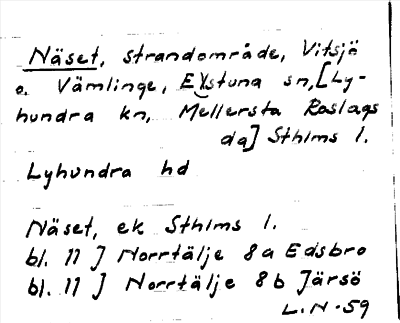 Näset, strandområde, Vitsjö
o. Vämlinge, Estuna sn, [Ly-
hundra kn, Mellersta Roslags
dg] Sthlms l.
Lyhundra hd
Näset, ek Sthlms l.
bl. 11 J Norrtälje 8a Edsbro
bl. 11 J Norrtälje 8b Järsö
L.N -59